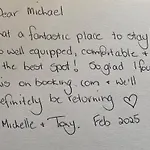 Dear Michael
at a fantastic place to stay
o well equipped, comfortable +
the best spot! So glad I fou
is on booking.com + we'll
efinitely be returning ♡
Michelle + Tony. Feb 2025